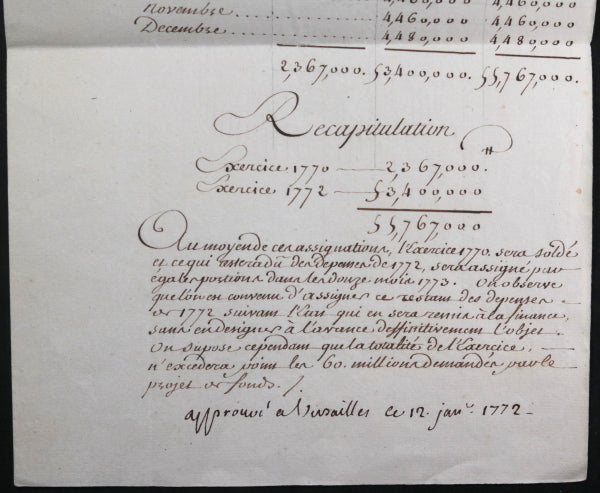 novembre 4,460,000 4,460,000
Decembre 4,480,000 4,480,000
2,367,000. 53,400,000. 55,767,000.
Recapitulation
Exercice 1770 2,367,000.
Exercice 1772 53,400,000
55,767,000
Au moyen de ces assignations, l'Exercice 1770. sera soldé
et ce qui restera dû des depenses de 1772, sera assigné par
égales portions dans les douze mois 1773. On observe
que l'on en convenu d'assigner ce restant des depenses
de 1772 suivant l'Etat qui en sera remis à la finance,
sans en designer à l'avance deffinitivement l'objet.
On supose cependant que la totalité de l'Exercice,
n'excedera point les 60. millions demandés par le
projet de fonds.
approuvé a Versailles ce 12. janv. 1772